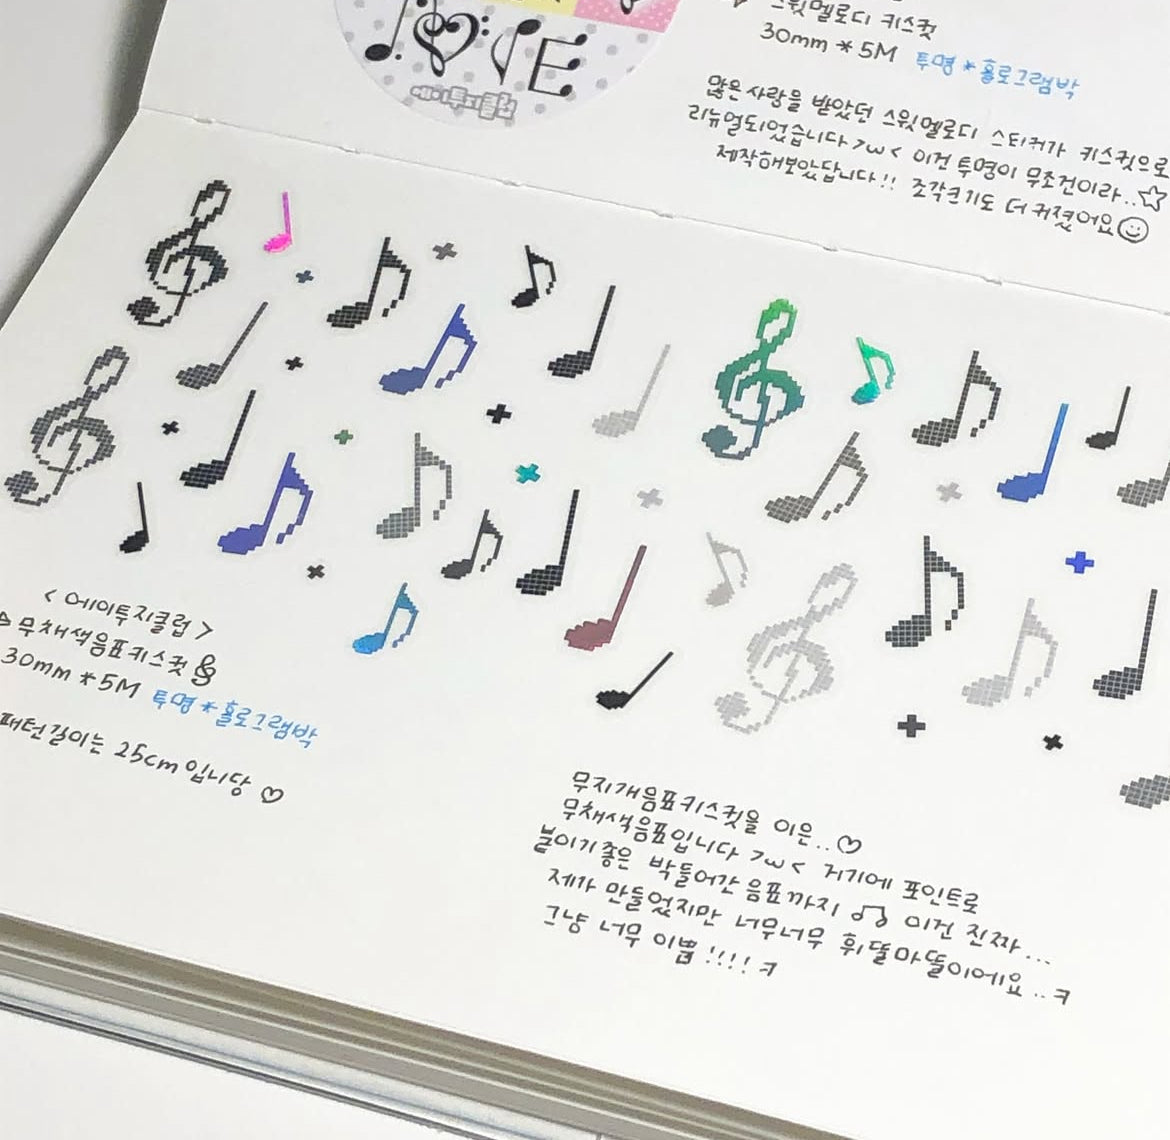 LOVE
에이투지클럽
스윗멜로디 키스컷
30mm * 5M 투명 * 홀로그램박
많은 사랑을 받았던 스윗멜로디 스티커가 키스컷으로
리뉴얼되었습니다 >ω< 이건 투명이 무조건이라..☆
제작해보았답니다!! 조각크기도 더 커졌어요☺
< 에이투지클럽 >
무채색음표키스컷
30mm * 5M 투명 * 홀로그램박
패턴길이는 25cm 입니당 ♡
무지개음표키스컷을 이은..♡
무채색음표입니다 >ω< 거기에 포인트로
붙이기좋은 박들어간 음표까지 ♫ 이건 진짜...
제가 만들었지만 너무너무 휘뚤마뚤이에요..ㅋ
그냥 너무 이쁨!!!! ㅋ